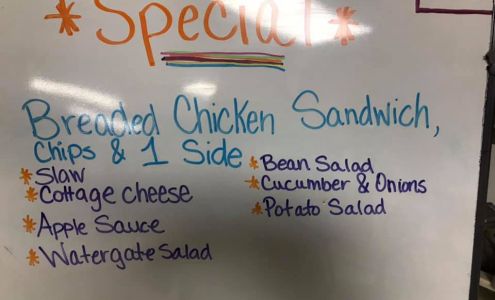 *Special*
Breaded Chicken Sandwich,
Chips & 1 Side
*Slaw
*Cottage cheese
*Apple Sauce
*Watergate Salad
*Bean Salad
*Cucumber & Onions
*Potato Salad